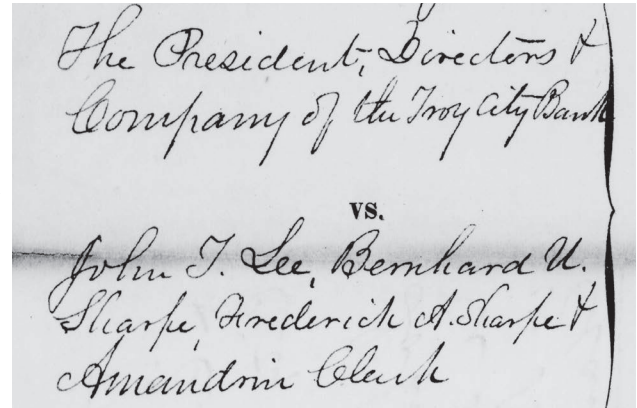 The President, Directors &
Company of the Troy City Bank
vs.
John T. Lee, Bernhard U.
Sharpe, Frederick A. Sharpe &
Amandrin Clark